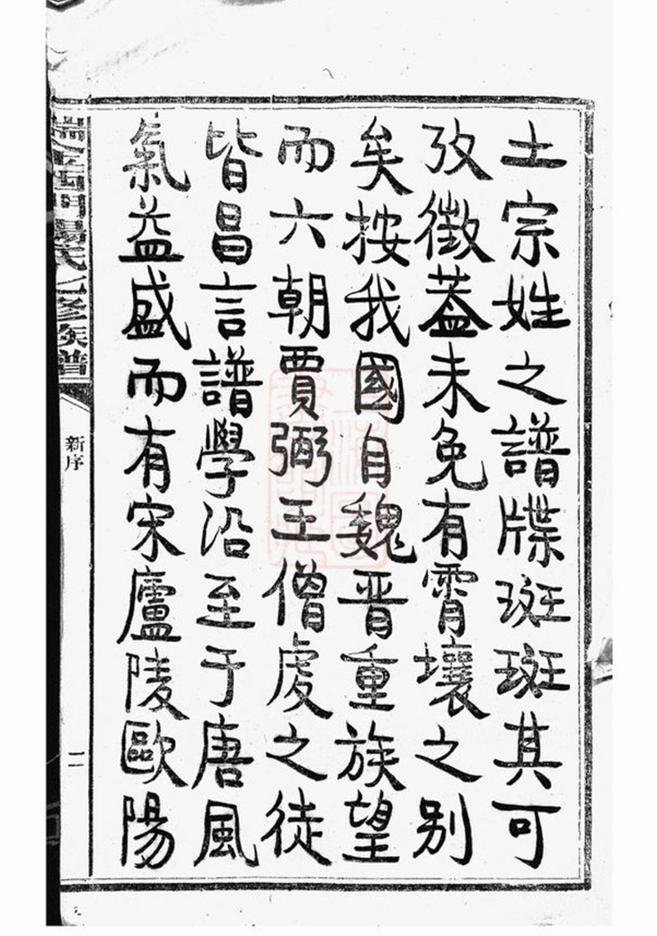 土宗姓之譜牒斑斑其可
攷徵蓋未免有霄壤之別
矣按我國自魏晋重族望
而六朝賈弼王僧虔之徒
皆昌言譜學沿至于唐風
氣益盛而有宋廬陵歐陽
楊氏七修族譜
新序
二